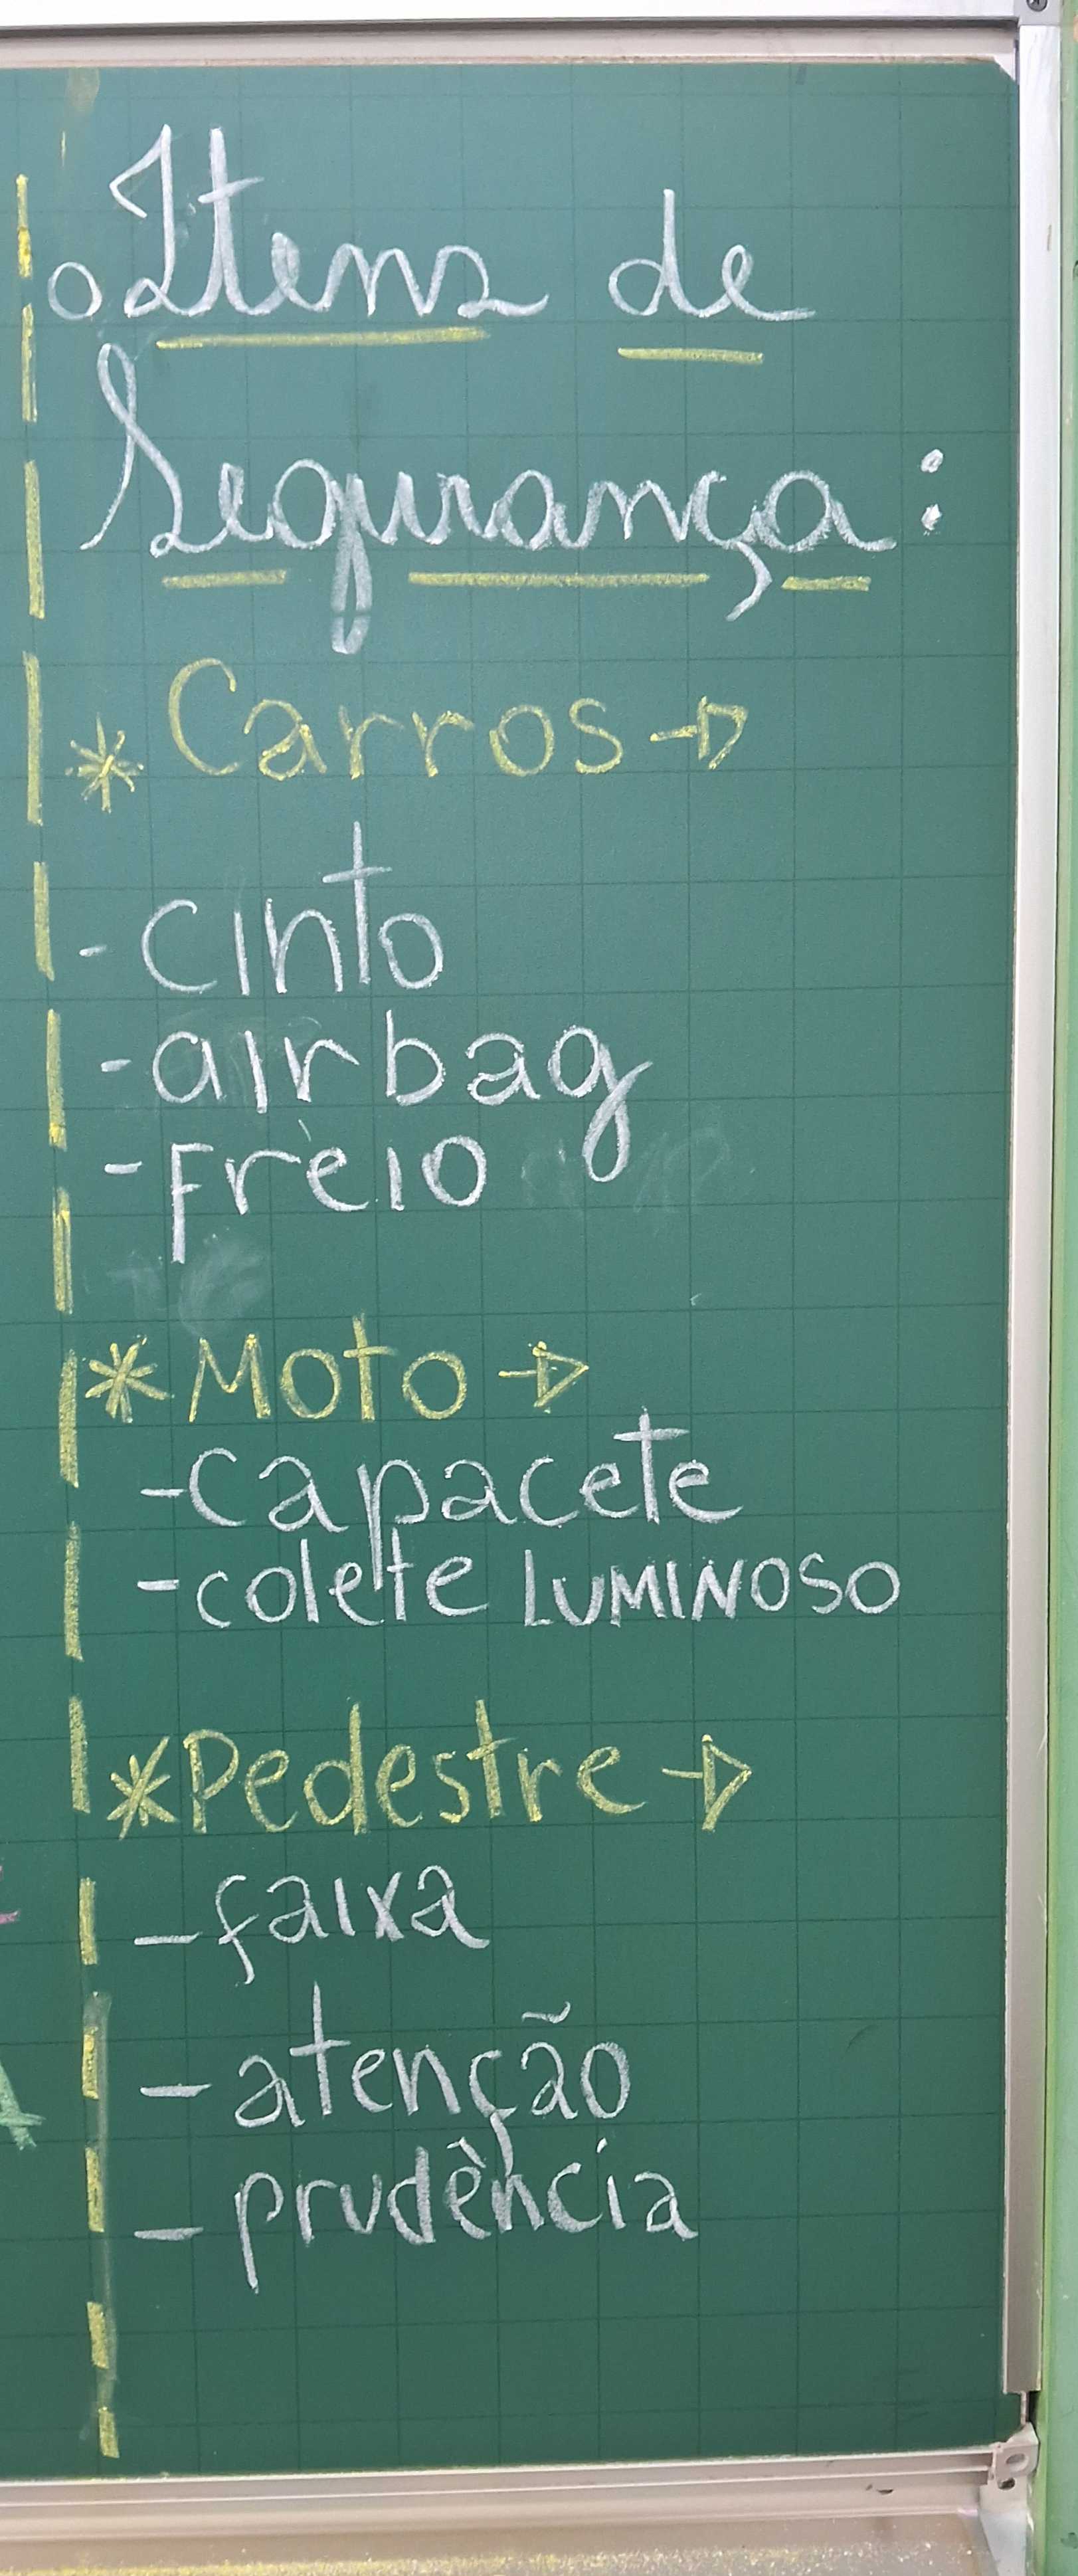 o Itens de
Segurança:
* Carros →
- cinto
- airbag
- Freio
* Moto →
- capacete
- colete LUMINOSO
* Pedestre →
- faixa
- atenção
- prudência